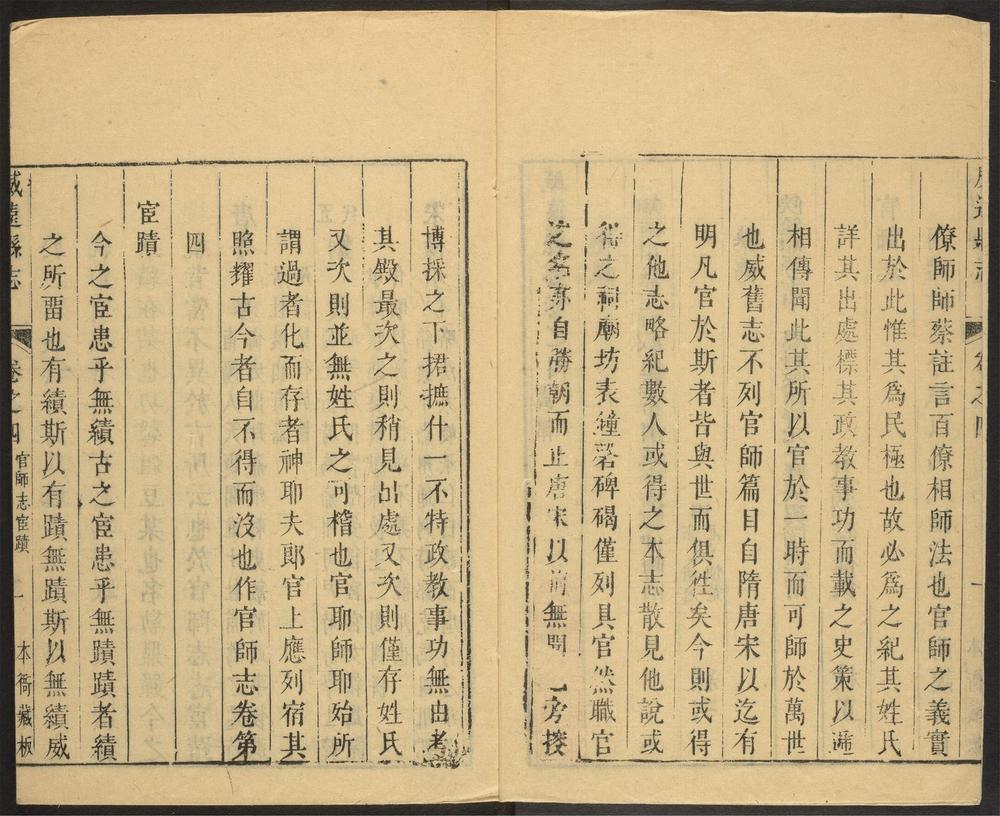 僚師師蔡註言百僚相師法也官師之義實
出於此惟其為民極也故必為之紀其姓氏
詳其出處標其政教事功而載之史策以遞
相傳聞此其所以官於一時而可師於萬世
也威舊志不列官師篇目自隋唐宋以迄有
明凡官於斯者皆與世而俱徃矣今則或得
之他志略紀數人或得之本志散見他說或
稱之祠廟坊表鐘磬碑碣僅列具官然職官
之自勝朝而止唐宋以前無聞一旁搜
博採之下捃摭什一不特政教事功無由考
其毀最次之則稍見出處又次則僅存姓氏
又次則並無姓氏之可稽也官耶師耶始所
謂過者化而存者神耶夫郎官上應列宿其
照耀古今者自不得而沒也作官師志卷第
四
宦蹟
今之宦患乎無績古之宦患乎無蹟蹟者績
之所畱也有績斯以有蹟無蹟斯以無績威
威遠縣志 卷之四 官師志宦蹟 一 本衙藏板